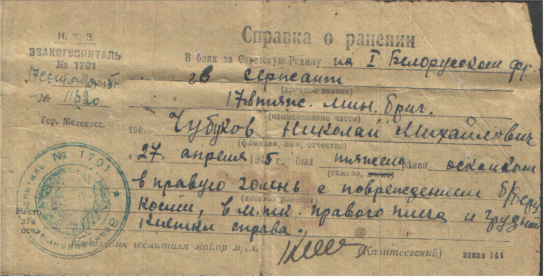 Справка о ранении
Н. К. З.
ЭВАКОГОСПИТАЛЬ
№ 1701
В боях за Советскую Родину на I Белорусском фр.
гв сержант
№ 1182о
(воинское звание)
17 мин. бриг.
(наименование части)
Гор. Мелекесс. тов. Чубуков Николай Михайлович
(фамилия, имя, отчество)
27 апреля 1945г. был тяжело ранен осколком
(тяжело,
в правую голень с повреждением б/берц
кости, в м.тк. правого плеча и грудной
клетки справа.
Место для печати
госпиталя майор м/сл. (Калитеевский)
заказ 144
ГОСПИТАЛЬ № 1701